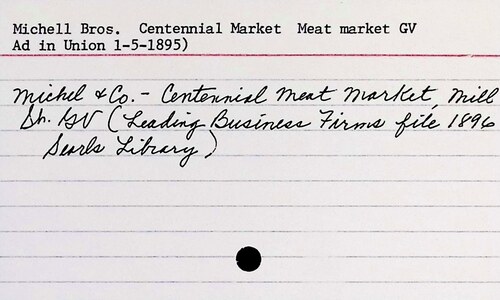 Michell Bros.  Centennial Market  Meat market GV
Ad in Union 1-5-1895)
Michel & Co. - Centennial Meat Market, Mill
Sh. GV (Leading Business Firms file 1896
Searls Library)